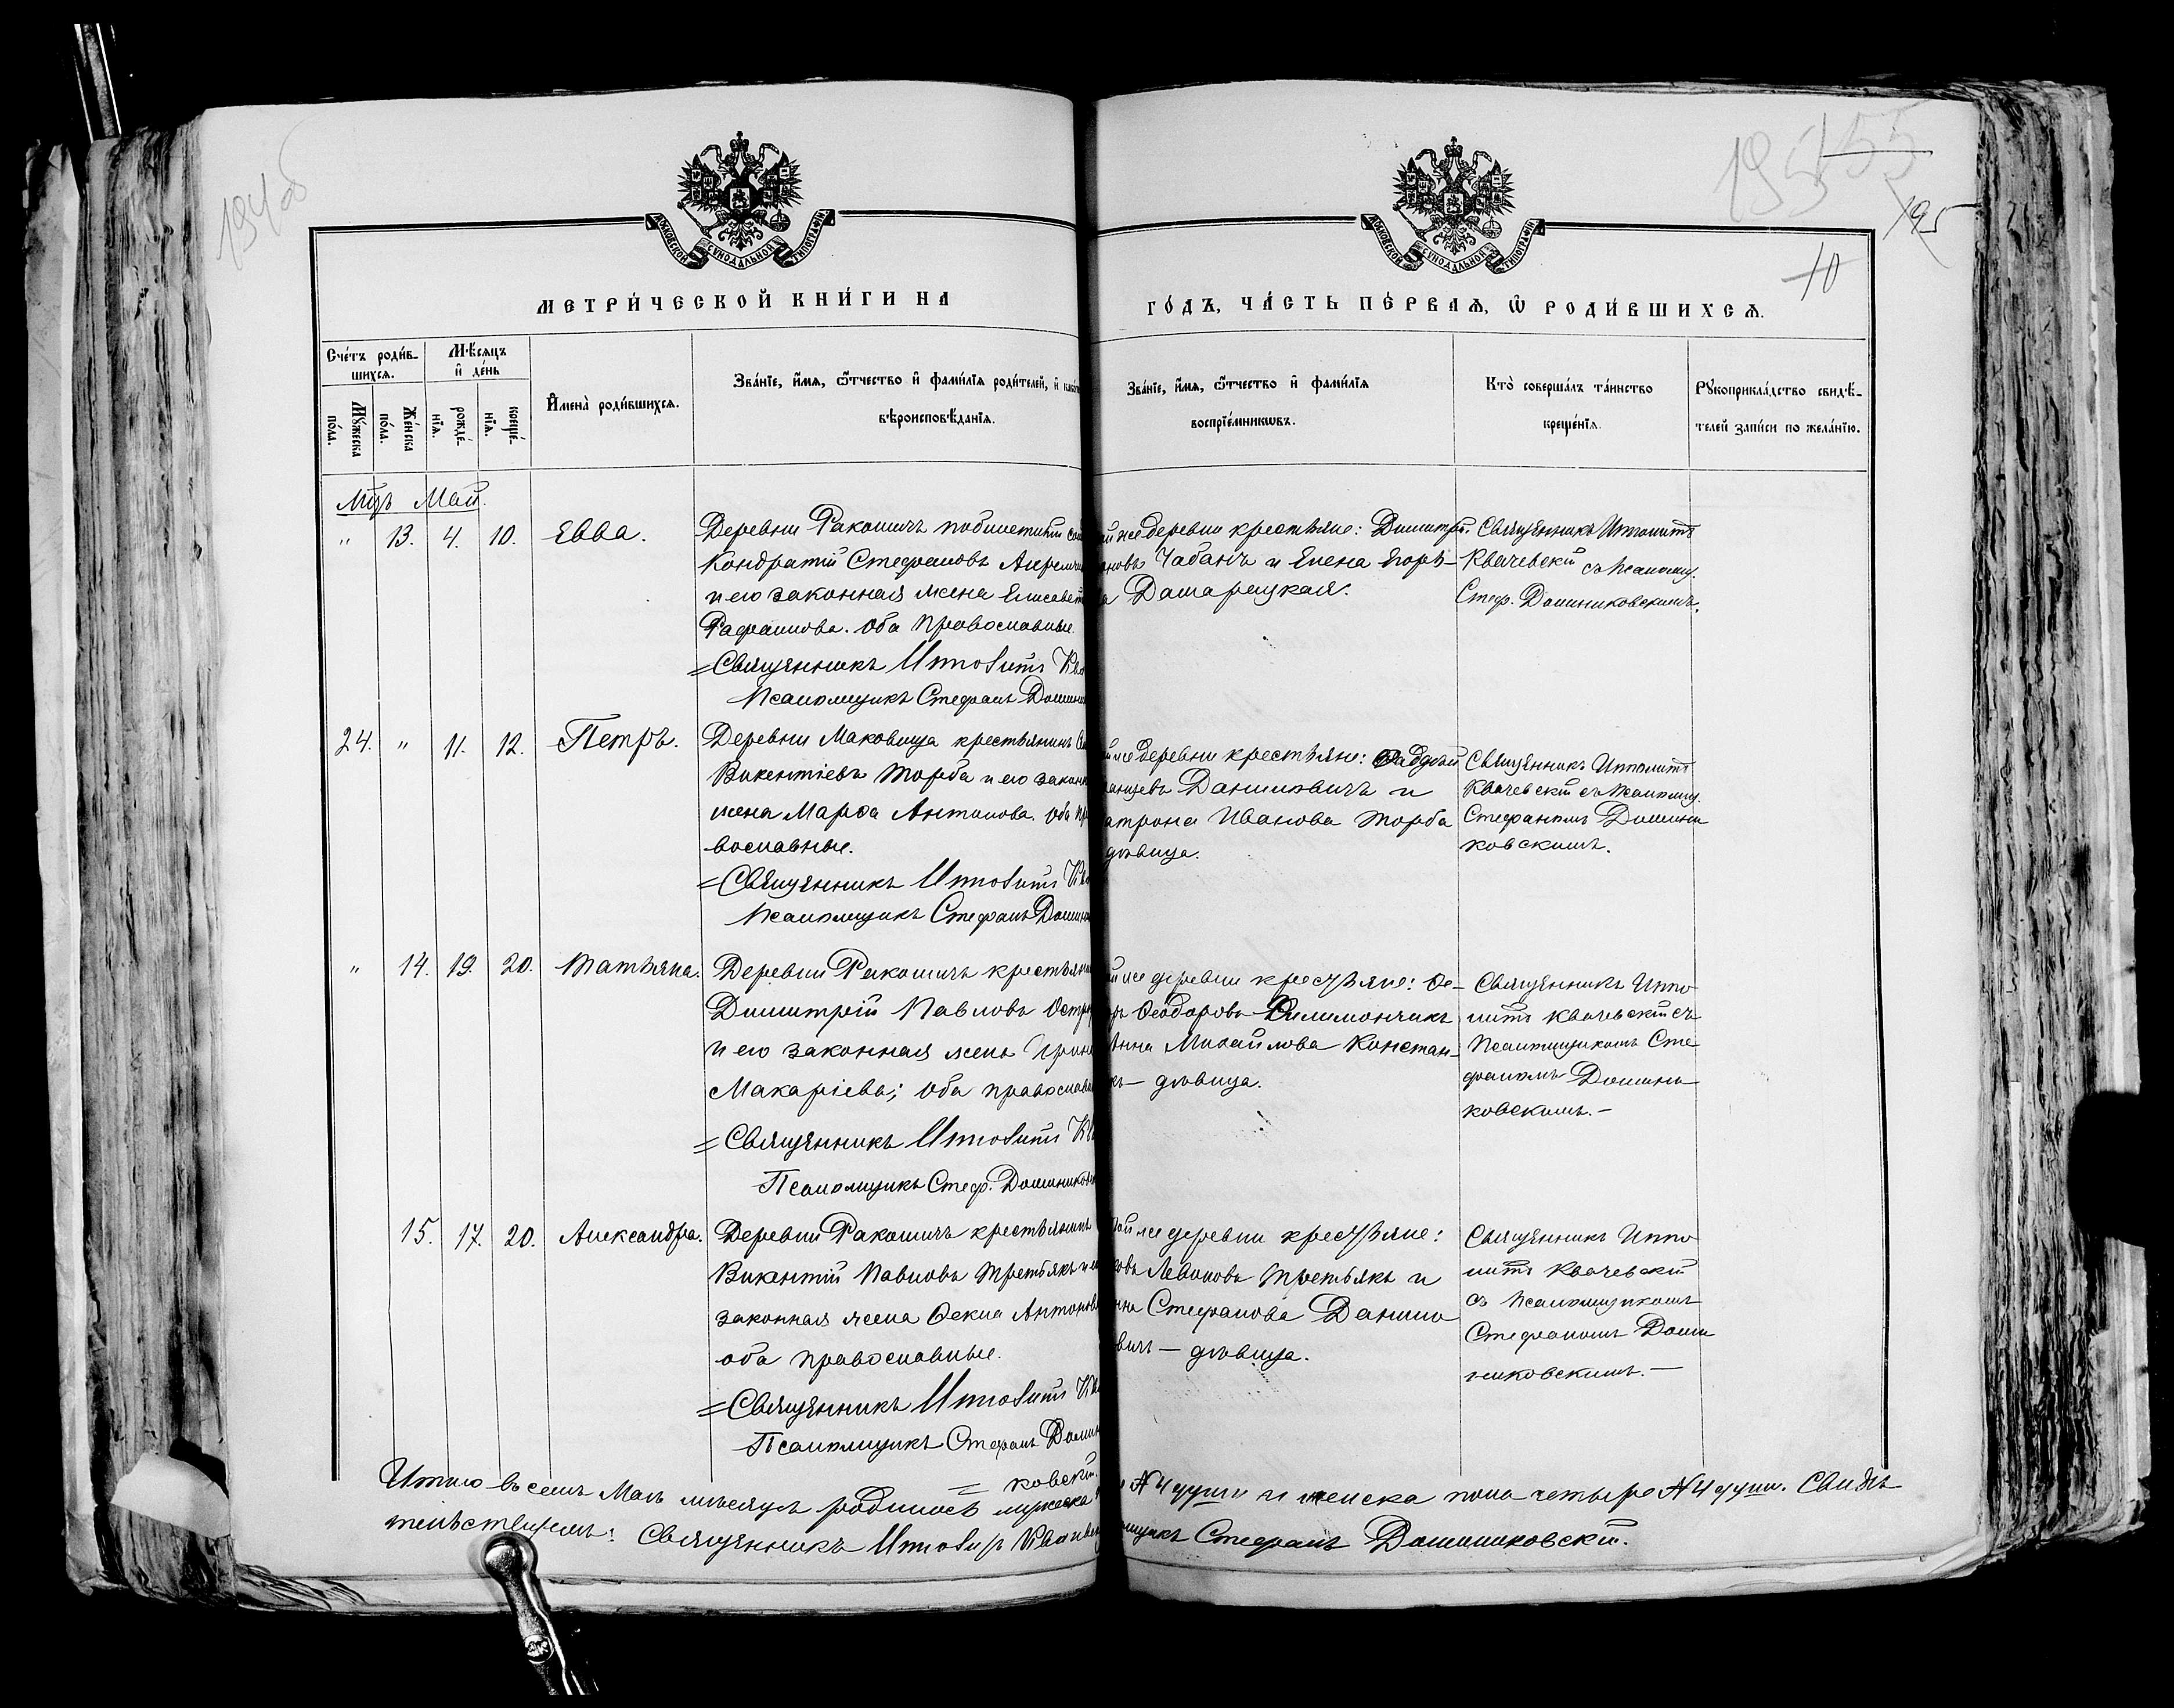 194 об
155
195
195
10
МОСКОВСКОЙ СУНОДАЛЬНОЙ ТИПОГРАФІИ
МОСКОВСКОЙ СУНОДАЛЬНОЙ ТИПОГРАФІИ
МЕТРИ́ЧЕСКОЙ КНИ́ГИ НА
ГО́ДЪ, ЧА́СТЬ ПЕ́РВАѦ, Ѿ РОДИ́ВШИХСѦ.
Сче́тъ роди́в-
шихсѧ.
Мꙋ́жеска
по́ла.
Же́нска
по́ла.
Мѣ́сѧцъ
и҆ де́нь
рожде́-
нїѧ.
креще́-
нїѧ.
И҆мена̀ роди́вшихсѧ.
Зва́нїе, и҆́мѧ, ѻ҆́тчество и҆ фами́лїѧ роди́телей, и҆
вѣроисповѣ́данїѧ.
Зва́нїе, и҆́мѧ, ѻ҆́тчество и҆ фами́лїѧ
воспрїе́мникѡвъ.
Кто̀ соверша́лъ та́инство
креще́нїѧ.
Рꙋкоприкла́дство свидѣ́-
телей за́писи по жела́нїю.
Мцъ Май.
" 13. 4. 10. Евва.
Деревни Ракошичъ
Кондратій Стефановъ
и его законная жена Елисавет
Оба православные.
=Священникъ Ипполитъ
Псаломщикъ Стефанъ
же деревни крестьяне: Димитрій
Чабанъ и Елена Егорь-
а Дамарацкая.
Священникъ Ипполитъ
Квачевскій съ псаломщ.
Стеф. Доминиковскимъ.
24. " 11. 12. Петръ.
Деревни Маковища крестьянинъ
Викентіевъ Торба и его закон
жена Марѳа Антонова. Оба пр
вославные.
=Священникъ Ипполитъ
Псаломщикъ Стефанъ
же деревни крестьяне: Ѳаддей
Даниловичъ и
атрона Иванова Торба
дѣвица.
Священникъ Ипполитъ
Квачевскій съ псаломщ.
Стефаномъ Домини
ковскимъ.
" 14. 19. 20. Татьяна.
Деревни Ракошичъ крестьян
Димитрій Павловъ
и его законная жена
Макаріева; оба правосла
=Священникъ Ипполитъ
Псаломщикъ Стеф. Домиников
же деревни крестьяне: Ѳе-
ръ Ѳеодоровъ Филимончикъ
нна Михайлова Констан-
къ — дѣвица.
Священникъ Иппо
литъ Квачевскій съ
Псаломщикомъ Сте
фаномъ Домини
ковскимъ.—
15. 17. 20. Александра.
Деревни Ракошичъ крестьянинъ
Викентій Павловъ Третьякъ и
законная жена Ѳекла Антонов
оба православные.
=Священникъ Ипполитъ
Псаломщикъ Стефанъ Домини
= ковскій.
же деревни крестьяне:
ковъ Левоновъ Третьякъ и
нна Стефанова Данило
вичъ — дѣвица.
Священникъ Иппо
литъ Квачевскій
съ Псаломщикомъ
Стефаномъ Доми
никовскимъ.—
Итого въ семъ Маѣ мѣсяцѣ родилось мужеска № 4 души и женска пола четыре № 4 души. Свидѣ
тельствуемъ: Священникъ Ипполитъ Квачевс мщикъ Стефанъ Доминиковскій.